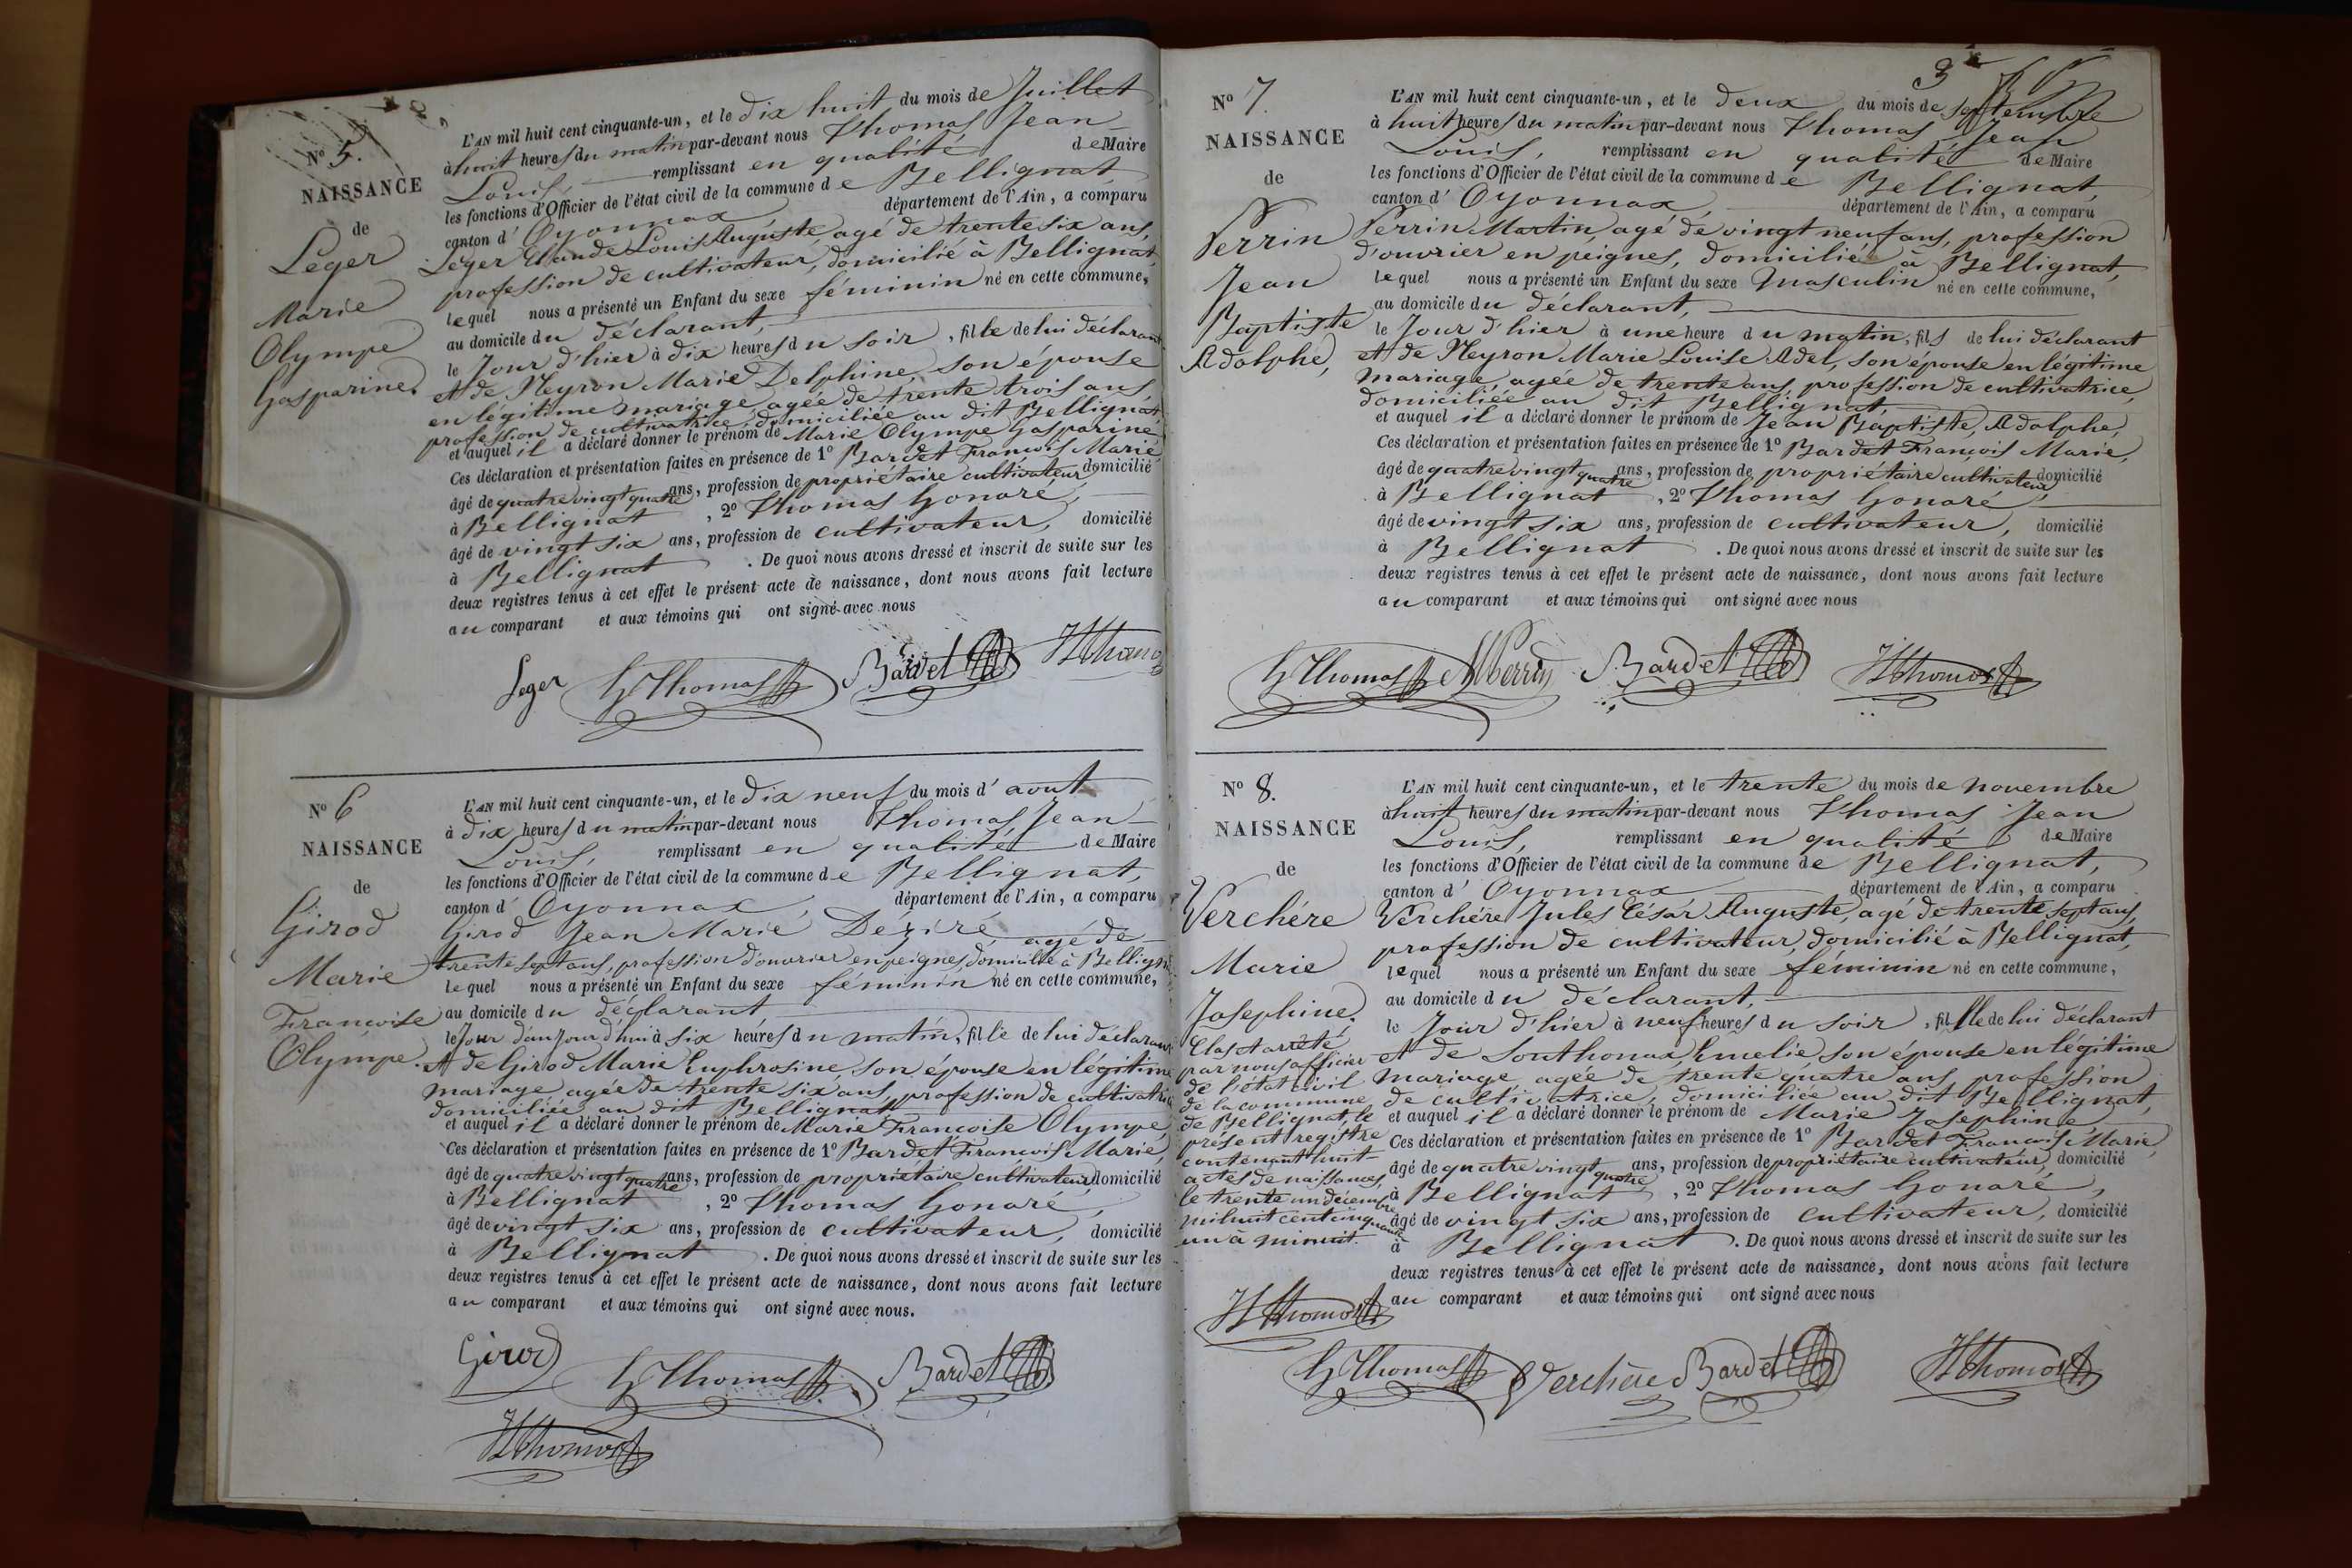 N° 5.
NAISSANCE
de
Léger
Marie
Olympe
Gasparine.
L'AN mil huit cent cinquante-un, et le dix huit du mois de Juillet
à huit heures du matin par-devant nous Thomas Jean
Louis, remplissant en qualité de Maire
les fonctions d'Officier de l'état civil de la commune de Bellignat,
canton d' Oyonnax, département de l'Ain, a comparu
Léger Claude Louis Auguste, agé de trente six ans,
profession de cultivateur, domicilié à Bellignat,
lequel nous a présenté un Enfant du sexe féminin né en cette commune,
au domicile du déclarant,
le Jour d'hier à dix heures du soir, fille de lui déclarant
et de Neyron Marie Delphine, son épouse
en légitime mariage, agée de trente trois ans,
profession de cultivatrice, domiciliée au dit Bellignat,
et auquel il a déclaré donner le prénom de Marie Olympe Gasparine,
Ces déclaration et présentation faites en présence de 1° Bardet François Marie,
âgé de quatre vingt quatre ans, profession de propriétaire cultivateur, domicilié
à Bellignat, 2° Thomas Honoré,
âgé de vingt six ans, profession de cultivateur, domicilié
à Bellignat. De quoi nous avons dressé et inscrit de suite sur les
deux registres tenus à cet effet le présent acte de naissance, dont nous avons fait lecture
au comparant et aux témoins qui ont signé avec nous
Leger H Thomas Bardet JL Thomas
N° 6
NAISSANCE
de
Girod
Marie
Françoise
Olympe.
L'AN mil huit cent cinquante-un, et le dix neuf du mois d' aout
à dix heures du matin par-devant nous Thomas Jean
Louis, remplissant en qualité de Maire
les fonctions d'Officier de l'état civil de la commune de Bellignat,
canton d' Oyonnax, département de l'Ain, a comparu
Girod Jean Marie Déziré, agé de
trente sept ans, profession d'ouvrier en peignes, domicilié à Bellignat
lequel nous a présenté un Enfant du sexe féminin né en cette commune,
au domicile du déclarant
le Jour d'aujourd'hui à six heures du matin, fille de lui déclarant
et de Girod Marie Euphrosine, son épouse en légitime
mariage, agée de trente six ans, profession de cultivatrice
domiciliée au dit Bellignat
et auquel il a déclaré donner le prénom de Marie Françoise Olympe,
Ces déclaration et présentation faites en présence de 1° Bardet François Marie,
âgé de quatre vingt quatre ans, profession de propriétaire cultivateur, domicilié
à Bellignat, 2° Thomas Honoré,
âgé de vingt six ans, profession de cultivateur, domicilié
à Bellignat. De quoi nous avons dressé et inscrit de suite sur les
deux registres tenus à cet effet le présent acte de naissance, dont nous avons fait lecture
au comparant et aux témoins qui ont signé avec nous.
Girod H Thomas Bardet
JL Thomas
3
N° 7.
NAISSANCE
de
Perrin
Jean
Baptiste
Adolphe,
L'AN mil huit cent cinquante-un, et le deux du mois de septembre
à huit heures du matin par-devant nous Thomas Jean
Louis, remplissant en qualité de Maire
les fonctions d'Officier de l'état civil de la commune de Bellignat,
canton d' Oyonnax, département de l'Ain, a comparu
Perrin Martin, agé de vingt neuf ans, profession
d'ouvrier en peignes, domicilié à Bellignat,
lequel nous a présenté un Enfant du sexe masculin né en cette commune,
au domicile du déclarant,
le Jour d'hier à une heure du matin, fils de lui déclarant
et de Neyron Marie Louise Adel, son épouse en légitime
mariage, agée de trente ans, profession de cultivatrice,
domiciliée au dit Bellignat,
et auquel il a déclaré donner le prénom de Jean Baptiste, Adolphe,
Ces déclaration et présentation faites en présence de 1° Bardet François Marie,
âgé de quatre vingt quatre ans, profession de propriétaire cultivateur, domicilié
à Bellignat, 2° Thomas Honoré
âgé de vingt six ans, profession de cultivateur, domicilié
à Bellignat. De quoi nous avons dressé et inscrit de suite sur les
deux registres tenus à cet effet le présent acte de naissance, dont nous avons fait lecture
au comparant et aux témoins qui ont signé avec nous
H Thomas M Perrin Bardet JL Thomas
N° 8.
NAISSANCE
de
Verchére
Marie
Josephine.
Clos et arrêté
par nous officier
de l'état civil
de la commune
de Bellignat, le
présent registre
contenant huit
actes de naissances,
le trente un décembre
mil huit cent cinquante
un à minuit.
JL Thomas
L'AN mil huit cent cinquante-un, et le trente du mois de novembre
à huit heures du matin par-devant nous Thomas Jean
Louis, remplissant en qualité de Maire
les fonctions d'Officier de l'état civil de la commune de Bellignat,
canton d' Oyonnax département de l'Ain, a comparu
Verchére Jules César Auguste, agé de trente sept ans,
profession de cultivateur, domicilié à Bellignat,
lequel nous a présenté un Enfant du sexe féminin né en cette commune,
au domicile du déclarant,
le Jour d'hier à neuf heures du soir, fille de lui déclarant
et de Southonax Emelie, son épouse en légitime
mariage, agée de trente quatre ans, profession
de cultivatrice, domiciliée au dit Bellignat,
et auquel il a déclaré donner le prénom de Marie Josephine
Ces déclaration et présentation faites en présence de 1° Bardet François Marie,
âgé de quatre vingt quatre ans, profession de propriétaire cultivateur, domicilié
à Bellignat, 2° Thomas Honoré,
âgé de vingt six ans, profession de cultivateur, domicilié
à Bellignat. De quoi nous avons dressé et inscrit de suite sur les
deux registres tenus à cet effet le présent acte de naissance, dont nous avons fait lecture
au comparant et aux témoins qui ont signé avec nous
H Thomas Verchère Bardet JL Thomas